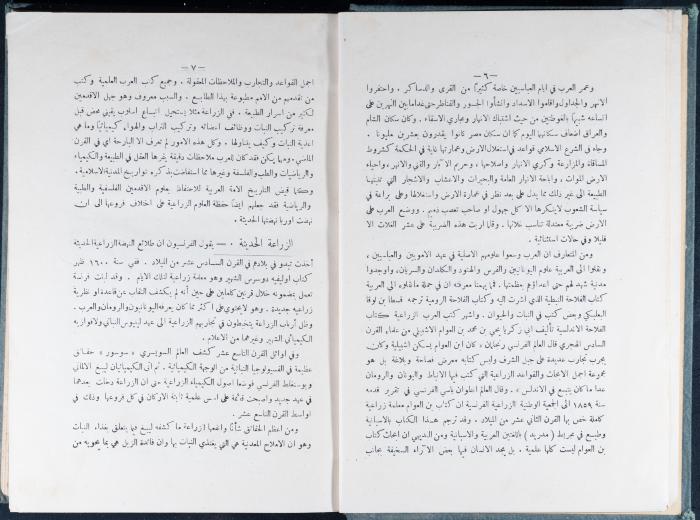 — ٦ —
وعمر العرب في ايام العباسيين خاصة كثيراً من القرى والدساكر . واحتفروا
الانهر والجداول واقاموا الاسداد وانشأوا الجسور والقناطر حتى غدا ما بين النهرين على
اتساعه شبيهاً بالغوطتين من حيث اشتباك الانهار ومجاري الاسقاء . وكان سكان الشام
والعراق اضعاف سكانهما اليوم كما ان سكان مصر كانوا يقدرون بعشرين مليونا .
وجاء في الشرع الاسلامي قواعد في استغلال الارض وعمارتها غاية في الحكمة كشروط
المساقاة والمزارعة وكري الانهار واصلاحها ، وحريم الآبار والقنى والانهر ، واحياء
الارض الموات ، واباحة الانهار العامة والبحيرات والاعشاب والاشجار التي تنبتها
الطبيعة الى غير ذلك مما يدل على بعد نظر في عمارة الارض واستغلالها وعلى براعة في
سياسة الشعوب لا ينكرها الا كل جهول او صاحب تعصب ذميم . ووضع العرب على
الارض ضريبة معتدلة تناسب غلاتها . وقلما اربت هذه الضريبة على عشر الغلات الا
قليلا وفي حالات استثنائية .
ومن المتعارف ان العرب وسعوا علومهم الاصلية في عهد الامويين والعباسيين ،
ونقلوا الى العربية علوم اليونانيين والفرس والهنود والكلدان والسريان ، واوجدوا
مدنية شهد لهم حتى اعداؤهم بعظمتها . فما يهمنا معرفته ان في جملة ما نقلوه الى العربية
كتاب الفلاحة النبطية الذي اشرت اليه وكتاب الفلاحة الرومية ترجمه قسطا بن لوقا
البعلبكي وبعض كتب في النبات والحيوان . واشهر كتب العرب الزراعية كتاب
الفلاحة الاندلسية تأليف ابي زكريا يحيى بن محمد بن العوام الاشبيلي من علماء القرن
السادس الهجري قال العالم الفرنسي رنجلمان « كان ابن العوام يسكن اشبيلية وكان
يجرب تجارب عديدة على جبل الشرف وليس كتابه معرض فصاحة وبلاغة بل هو
مجموعة اجمل الابحاث والقواعد الزراعية التي كتب فيها الانباط واليونان والرومان
عدا ما كان يتبع في الاندلس » . وقال العالم الفرنسي في تقرير قدمه
١٨٥٩ الى الجمعية الوطنية الزراعية الفرنسية ان كتاب بن العوام معلمة زراعية
كاملة خص بها القرن الثاني عشر من الميلاد . وقد ترجم هذا الكتاب بالاسبانية
وطبع في مجريط ( مدريد ) باللغتين العربية والاسبانية ومن البديهي ان ابحاث كتاب
بن العوام ليست كلها علمية . بل يجد الانسان فيها بعض الآراء السخيفة بجانب
— ٧ —
اجمل القواعد والتجارب والملاحظات المعقولة . وجميع كتب العرب العلمية وكتب
من تقدمهم من الامم مطبوعة بهذا الطابع . والسبب معروف وهو جهل الاقدمين
لكثير من اسرار الطبيعة . في الزراعة مثلا يستحيل اتباع اسلوب يقيني محض قبل
معرفة تركيب النبات ووظائف اعضائه وتركيب التراب والهواء كيميائياً وما هي
اغذية النبات وكيف يتناولها . وكل هذه الامور لم تعرف الا البارحة اي في القرن
الماضي . ومهما يكن فقد كان للعرب ملاحظات دقيقة يقرها العقل في الطبيعة والكيمياء
والرياضيات والطب والفلسفة وغيرها مما استفاضت بذكره تواريخ المدنية الاسلامية .
وهكذا قيض التاريخ الامة العربية للاحتفاظ بعلوم الاقدمين الفلسفية والطبية
والرياضية فقد جعلهم ايضاً حفظة العلوم الزراعية على اختلاف فروعها الى ان
نهدت اوربا نهضتها الحديثة .
الزراعة الحديثة . — يقول الفرنسيون ان طلائع النهضة الزراعية الحديثة
أخذت تبدو في بلادهم في القرن السادس عشر من الميلاد . ففي سنة ١٦٠٠ ظهر
كتاب اوليفيه دوسرس الشهير وهو معلمة زراعية لتلك الايام . وقد لبثت فرنسة
تعمل بمضمونه خلال قرنين كاملين على حين أنه لم يكشف النقاب عن قاعدة او نظرية
زراعية جديدة . وهو لا يحتوي على اكثر مما كان يعرفه اليونانيون والرومان والعرب .
وظل أرباب الزراعة يتخبطون في تجاربهم الزراعية الى عهد لينوس النباتي ولافوازيه
الكيميائي الشهير وغيرهما من الاعلام .
وفي اوائل القرن التاسع عشر كشف العالم السويسري « سوسور » حقائق
عظيمة في الفسيولوجيا النباتية من الوجهة الكيميائية . ثم اتى الكيميائيان ليبغ الالماني
وبوسنغلط الفرنسي فوضعا اصول الكيمياء الزراعية حتى ان الزراعة دخلت بعدهما
في عهد جديد واصبحت قائمة على اسس علمية ثابتة الاركان في كل فروعها وذلك في
اواسط القرن التاسع عشر .
ومن اعظم الحقائق شأناً وانفعها للزراعة ما كشفه ليبغ فيما يتعلق بغذاء النبات
وهو ان الاملاح المعدنية هي التي يغتذي النبات بها وان فائدة الزبل هي بما يحويه من